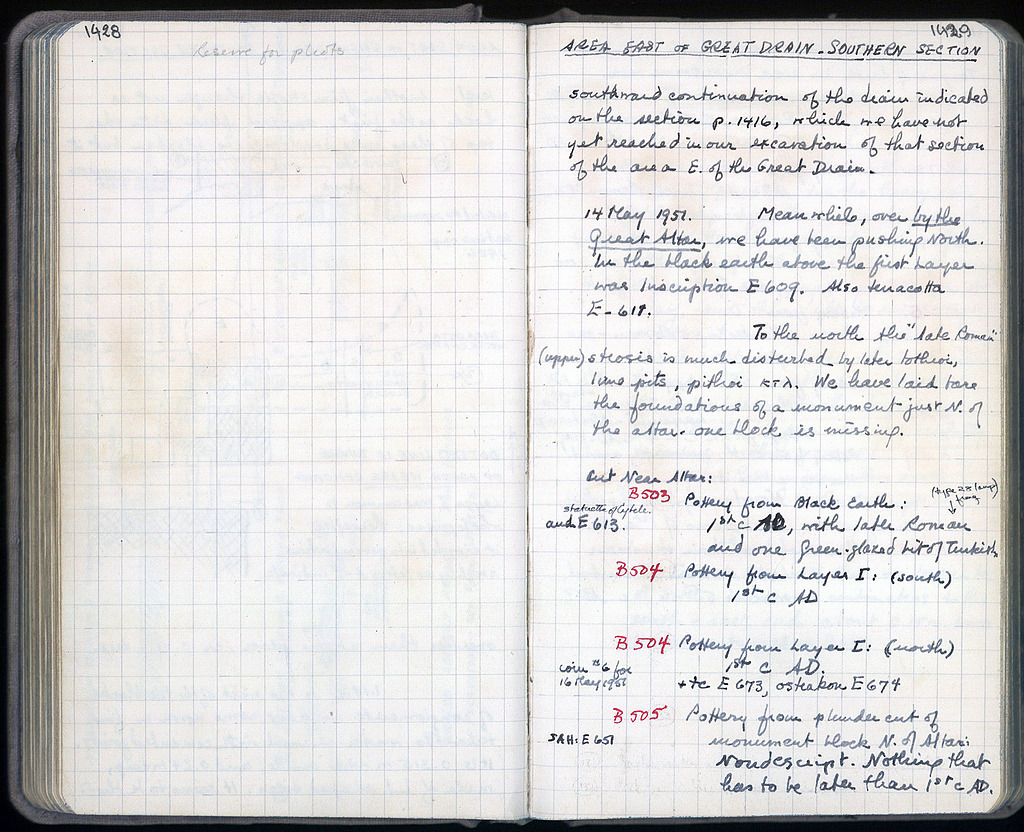 1428
Reserve for photos
1429
AREA EAST OF GREAT DRAIN - SOUTHERN SECTION
southward continuation of the drain indicated
on the section p. 1416, which we have not
yet reached in our excavation of that section
of the area E. of the Great Drain.
14 May 1951. Meanwhile, over by the
Great Altar, we have been pushing North.
In the black earth above the first Layer
was Inscription E 609. Also terracotta
E - 611.
To the north the "late Roman"
(upper) strosis is much disturbed by later bothroi,
lime pits, pithoi κτλ. We have laid bare
the foundations of a monument just N. of
the altar. one block is missing.
Cut Near Altar:
B 503 Pottery from Black Earth:
(type 28 lamp frag)
statuette of Cybele.
and E 613.
1st c AD, with later Roman
and one Green-glazed bit of Turkish
B 504 Pottery from Layer I: (south)
1st c AD
B 504 Pottery from Layer I: (north)
1st c AD.
coin #6 for
16 May 1951
+tc E 673, ostrakon E 674
B 505 Pottery from plunder cut of
SAH: E 651
monument block N. of Altar:
Nondescript. Nothing that
has to be later than 1st c AD.